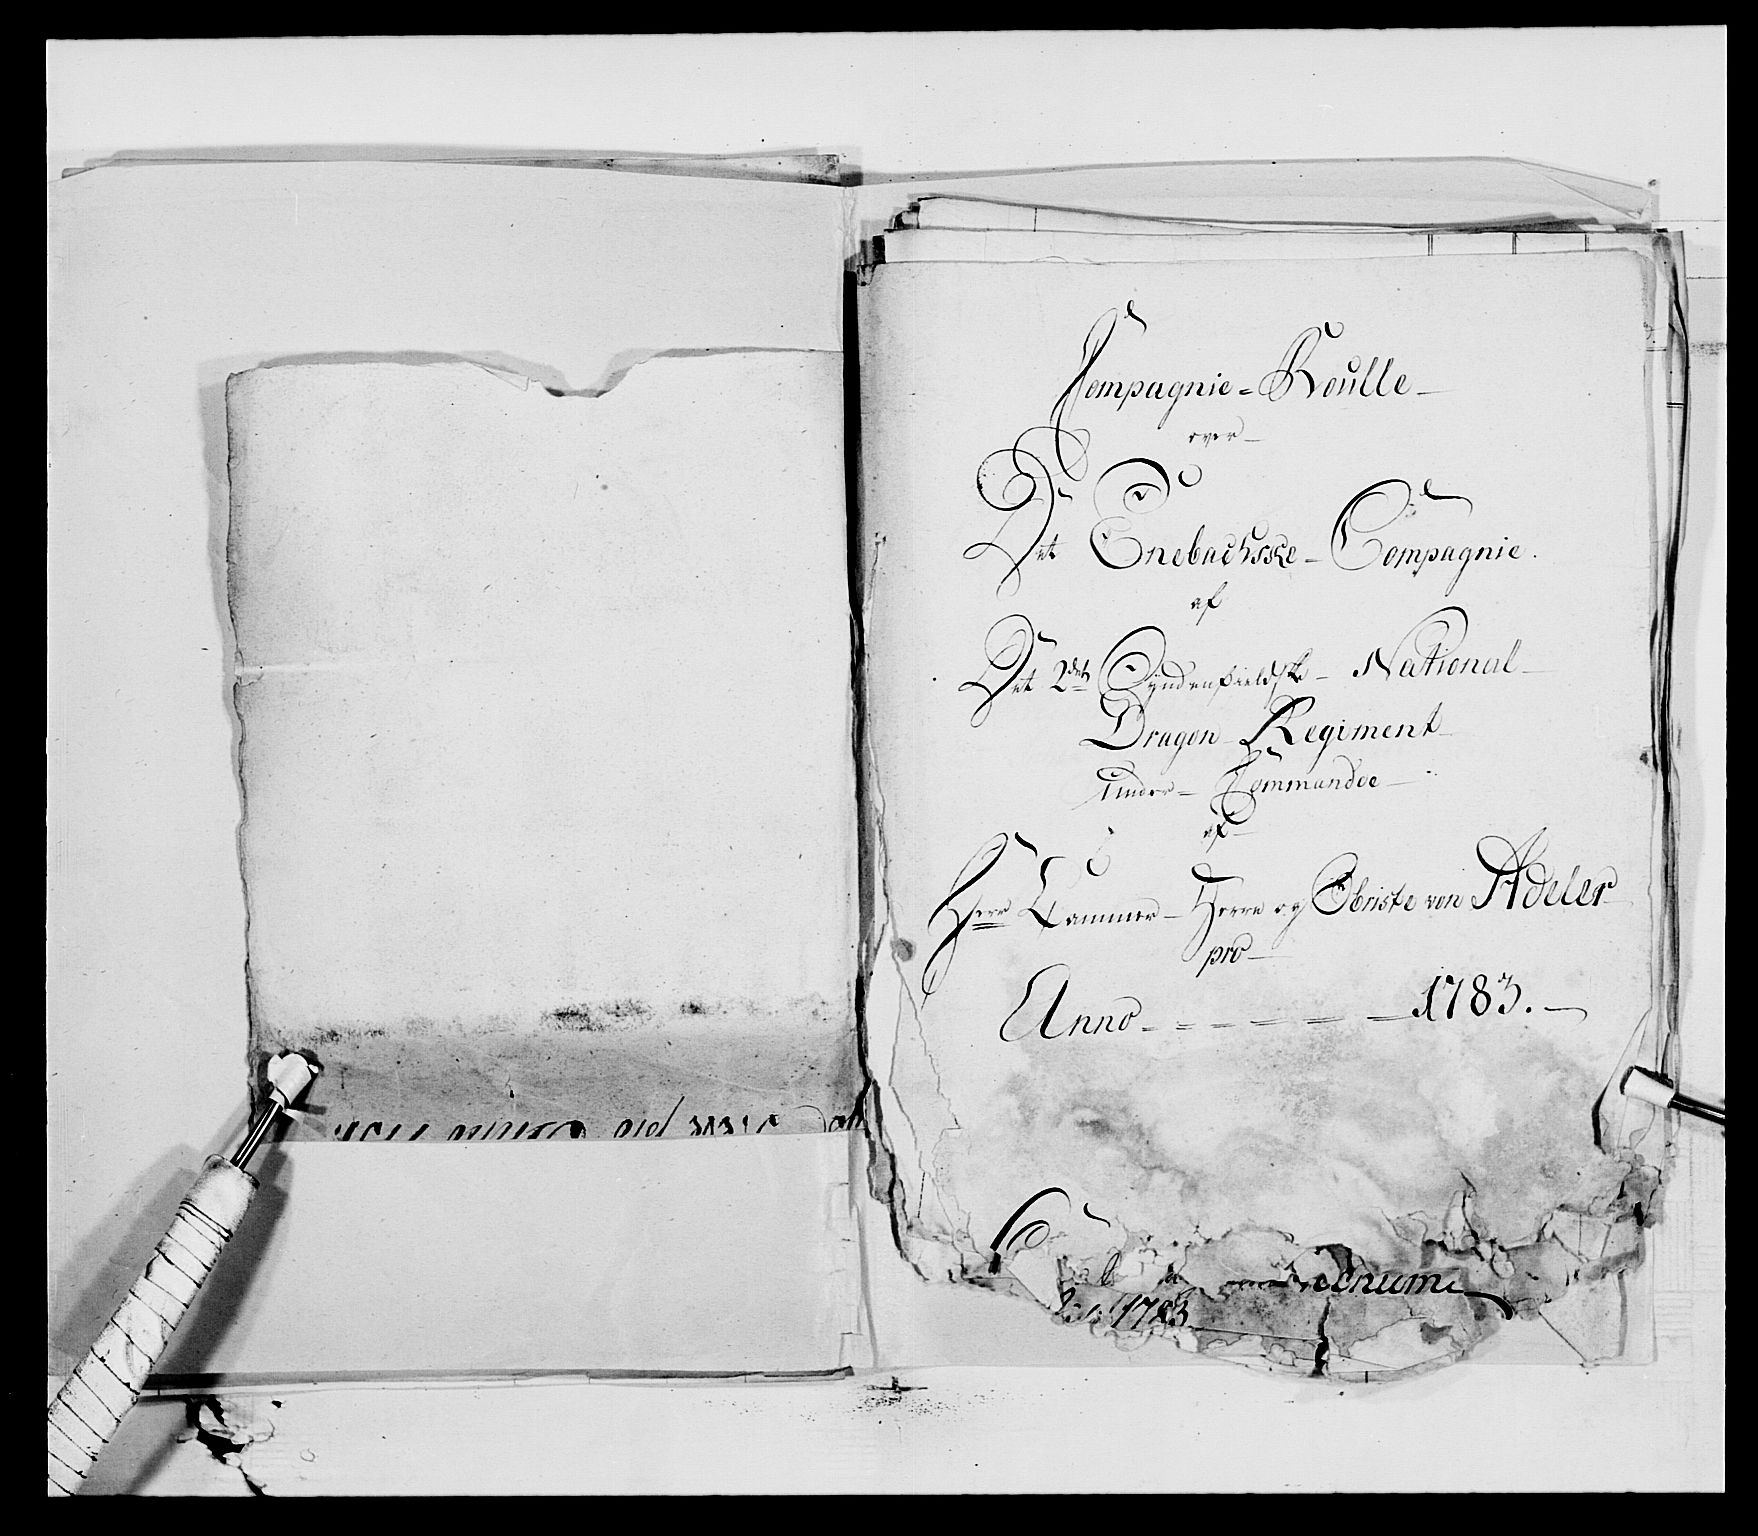 Compagnie-Roulle
over
Det Enebachsske-Compagnie.
af
Det 2det Syndenfieldske-National
Dragon Regiment
Under Commandoe
af
Herr Cammer-Herre og Obriste von Adeler
pro
Anno 1783.
1783